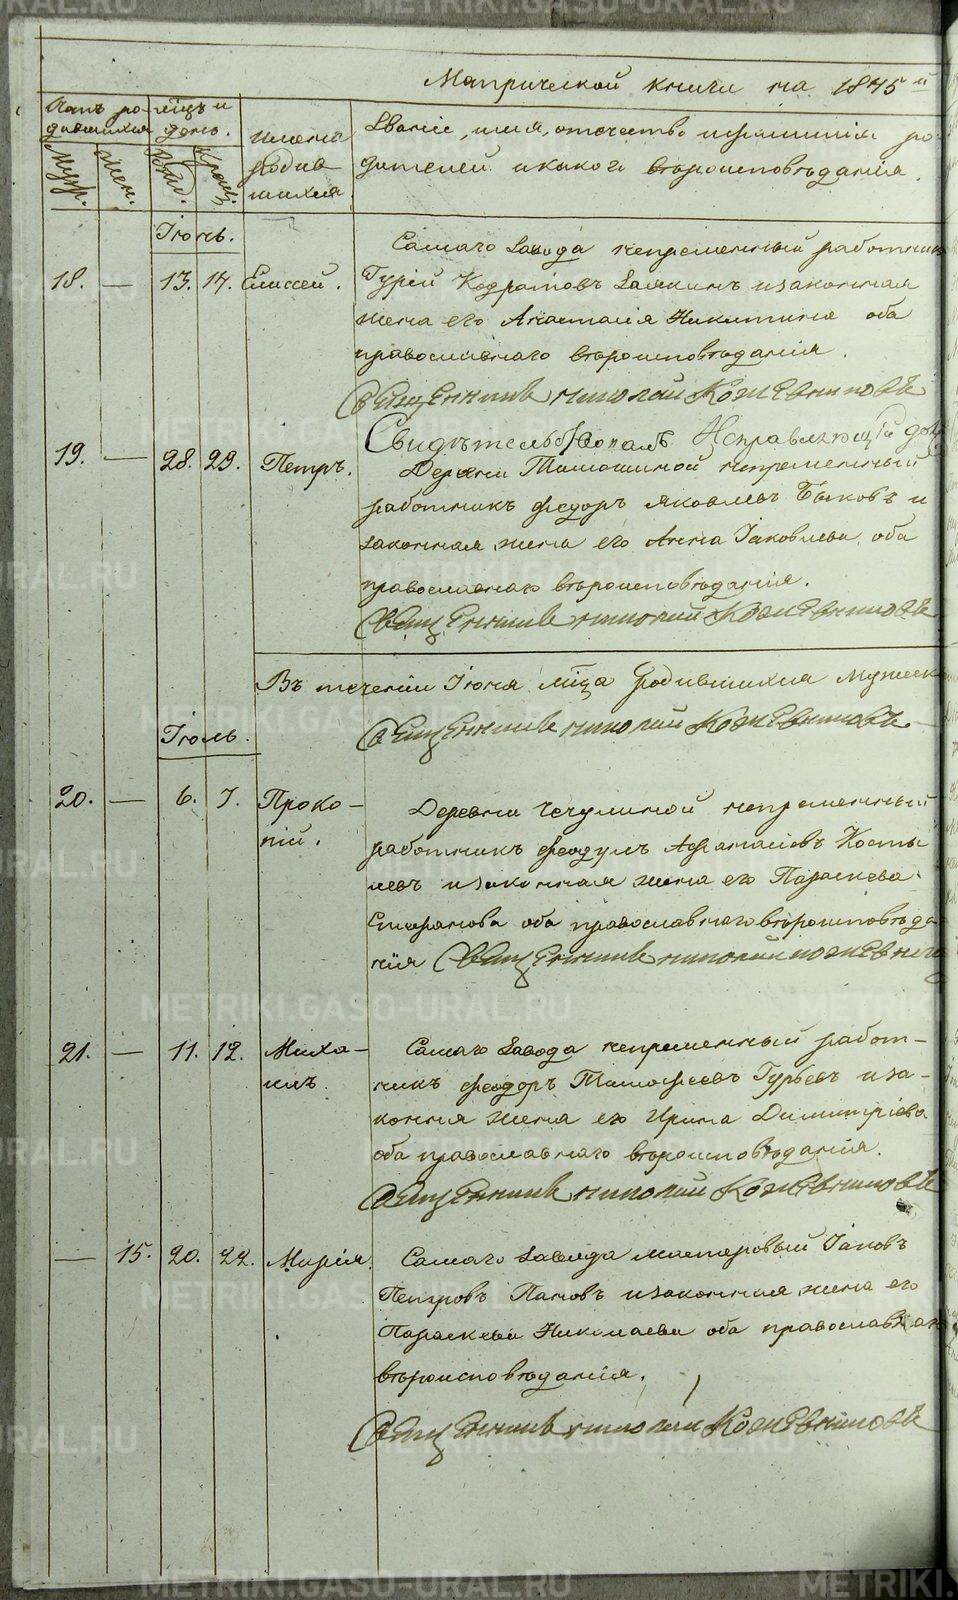 Метрической книги на 1845й
Счетъ ро- | мѣсяцъ и
дившихся | день.
Муж. | Жен. | Рожд. | Крещ.
имена
родив
шихся.
Званіе, имя, отчество и фамилія ро-
дителей и какого вѣроисповѣданія.
Іюнь.
Самаго завода непременный работникъ
18. — 13. 14. Елиссей. Гурій Кодратовъ Заякинъ и законная
жена его Анастасія Никитина оба
православнаго вѣроисповѣданія.
Священникъ Николай Кожевниковъ
Свидѣтельствовалъ Исправляющій
19. — 28. 29. Петръ. Деревни Тимошиной непременный
работникъ Феодоръ Яковлевъ Быковъ и
законная жена его Анна Іаковлева, оба
православнаго вѣроисповѣданія.
Священникъ Николай Кожевниковъ
Въ теченіи Іюня мца родившихся мужеск
Священникъ Николай Кожевниковъ
Іюль.
20. — 6. 7. Проко- Деревни Чечулиной непременный
пій. работникъ Феодулъ Афанасіевъ Косты
левъ и законная жена его Параскева
Стефанова оба православнаго вѣроисповѣда
нія Священникъ Николай Кожевнико
21. — 11. 12. Миха- Самаго завода непременный работ-
илъ. никъ Феодоръ Тимофеевъ Гурьевъ и за-
конная жена его Ирина Димитріева
оба православнаго вѣроисповѣданія.
Священникъ Николай Кожевниковъ
— 15. 20. 22. Марія. Самаго завода мастеровый Іаковъ
Петровъ Пановъ и законная жена его
Параскева Николаева оба православнаго
вѣроисповѣданія.
Священникъ Николай Кожевниковъ
METRIKI.GASO-URAL.RU